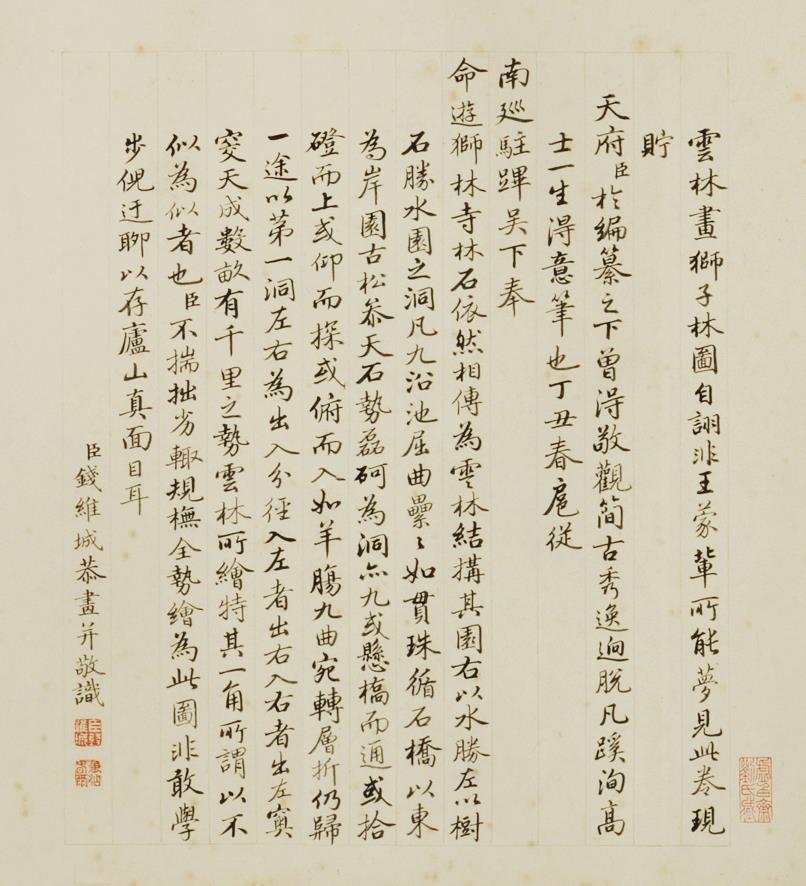 雲林畫獅子林圖自詡非王蒙輩所能夢見此卷現
貯
天府臣於編纂之下曾得敬觀簡古秀逸迥脫凡蹊洵高
士一生得意筆也丁丑春扈從
南廵駐蹕吴下奉
命遊獅林寺林石依然相傳為雲林結搆其園右以水勝左以樹
石勝水園之洞凡九沿池屈曲纍〻如貫珠循石橋以東
為岸園古松叅天石勢磊砢為洞亦九或懸橋而通或拾
磴而上或仰而探或俯而入如羊腸九曲宛轉層折仍歸
一途以第一洞左右為出入分徑入左者出右入右者出左
天成數畝有千里之勢雲林所繪特其一角所謂以不
似為似者也臣不揣拙劣輙規橅全勢繪為此圖非敢學
步倪迂聊以存廬山真面目耳
臣錢維城恭畫并敬識